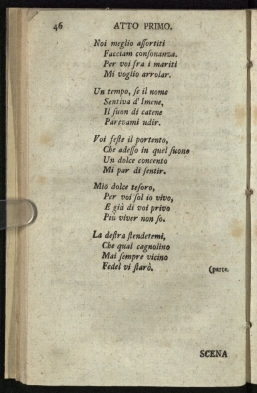 46 ATTO PRIMO.
Noi meglio aſſortiti
Facciam conſonanza.
Per voi fra i mariti
Mi voglio arrolar.
Un tempo, ſe il nome
Sentiva d'Imene,
Il ſuon di catene
Parevami udir.
Voi feſte il portento,
Che adeſſo in quel ſuono
Un dolce concento
Mi par di ſentir.
Mio dolce teſoro,
Per voi ſol io vivo,
E già di voi privo
Più viver non ſo.
La deſtra ſtendetemi,
Che qual cagnolino
Mai ſempre vicino
Fedel vi ſtarò. (parte.
SCENA